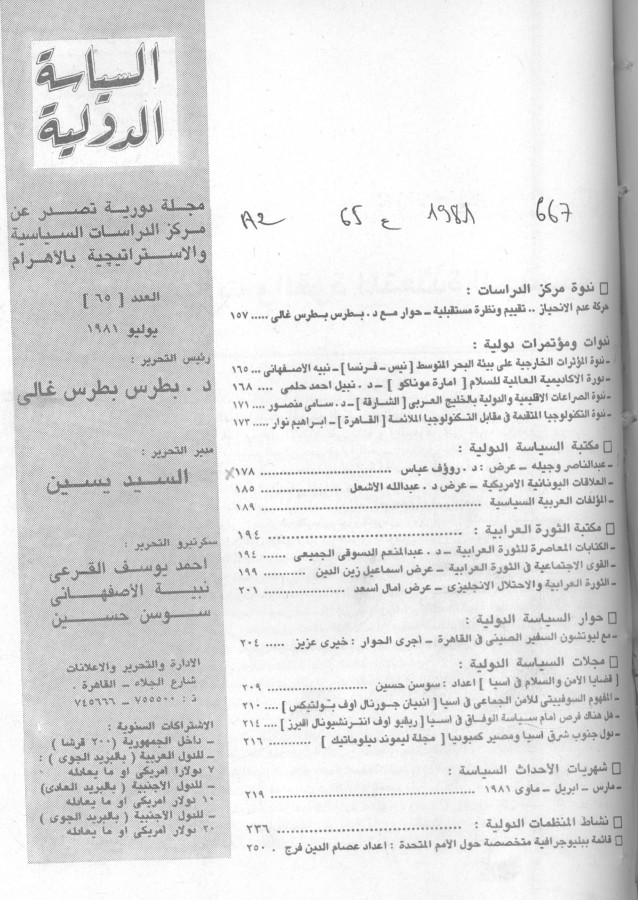 السياسة
الدولية
مجلة دورية تصدر عن
مركز الدراسات السياسية
والاستراتيجية بالأهرام
العدد [ ٦٥ ]
يوليو ١٩٨١
رئيس التحرير :
د . بطرس بطرس غالى
مدير التحرير :
السيد يسين
سكرتيرو التحرير :
احمد يوسف القرعى
نبية الأصفهانى
سوسن حسين
الادارة والتحرير والاعلانات
شارع الجلاء ــ القاهرة .
ت : ٧٥٥٥٠٠ ــ ٧٤٥٦٦٦
الاشتراكات السنوية :
ــ داخل الجمهورية ( ٢٠٠ قرشا )
ــ للدول العربية ( بالبريد الجوى ) :
٧ دولارا امريكى او ما يعادله
ــ للدول الأجنبية ( بالبريد العادى)
١٠ دولار امريكى او ما يعادله
ــ للدول الأجنبية ( بالبريد الجوى )
٢٠ دولار امريكى او ما يعادله
A2 65 ع 1981 667
□ ندوة مركز الدراسات :
حركة عدم الانحياز .. تقييم ونظرة مستقبلية ــ حوار مع د . بطرس بطرس غالى ..... ١٥٧
ندوات ومؤتمرات دولية :
ـ ندوة المؤثرات الخارجية على بيئة البحر المتوسط [ نيس ــ فرنسا ] ــ نبيه الأصفهانى ... ١٦٥
ـ دورة الاكاديمية العالمية للسلام [ امارة موناكو ] ــ د . نبيل احمد حلمى .... ١٦٨
ـ ندوة الصراعات الاقليمية والدولية بالخليج العربى [ الشارقة ] ــ د. سامى منصور .... ١٧١
ـ ندوة التكنولوجيا المتقدمة فى مقابل التكنولوجيا الملائمة [ القاهرة ] ــ ابراهيم نوار ..... ١٧٣
□ مكتبة السياسة الدولية :
ـ عبدالناصر وجيله ــ عرض : د . رؤوف عباس .................... ١٧٨
ـ العلاقات اليونانية الأمريكية ــ عرض د . عبدالله الأشعل .................... ١٨٥
ـ المؤلفات العربية السياسية .................... ١٨٩
□ مكتبة الثورة العرابية : .................... ١٩٤
ـ الكتابات المعاصرة للثورة العرابية ــ د . عبدالمنعم الدسوقى الجميعى ...... ١٩٤
ـ القوى الاجتماعية فى الثورة العرابية ــ عرض اسماعيل زين الدين .......... ١٩٩
ـ الثورة العرابية والاحتلال الانجليزى ــ عرض امال اسعد .................... ٢٠١
□ حوار السياسة الدولية :
ـ مع ليوتشون السفير الصينى فى القاهرة ــ اجرى الحوار : خيرى عزيز ..... ٢٠٤
□ مجلات السياسة الدولية :
[ قضايا الأمن والسلام فى اسيا ] اعداد : سوسن حسين .................... ٢٠٩
ـ المفهوم السوفييتى للأمن الجماعى فى اسيا [ انديان جورنال اوف بولتيكس ] .... ٢١٠
ـ هل هناك فرص امام سياسة الوفاق فى اسيا [ ريفيو اوف انترنشيونال افيرز ] ... ٢١٤
ـ دول جنوب شرق اسيا ومصير كمبوديا [ مجلة ليموند ديلوماتيك ] ........... ٢١٦
□ شهريات الأحداث السياسة :
ـ مارس ــ ابريل ــ ماوى ١٩٨١ .................... ٢١٩
□ نشاط المنظمات الدولية : .................... ٢٣٦
□ قائمة ببليوجرافية متخصصة حول الأمم المتحدة : اعداد عصام الدين فرج . ٢٥٠